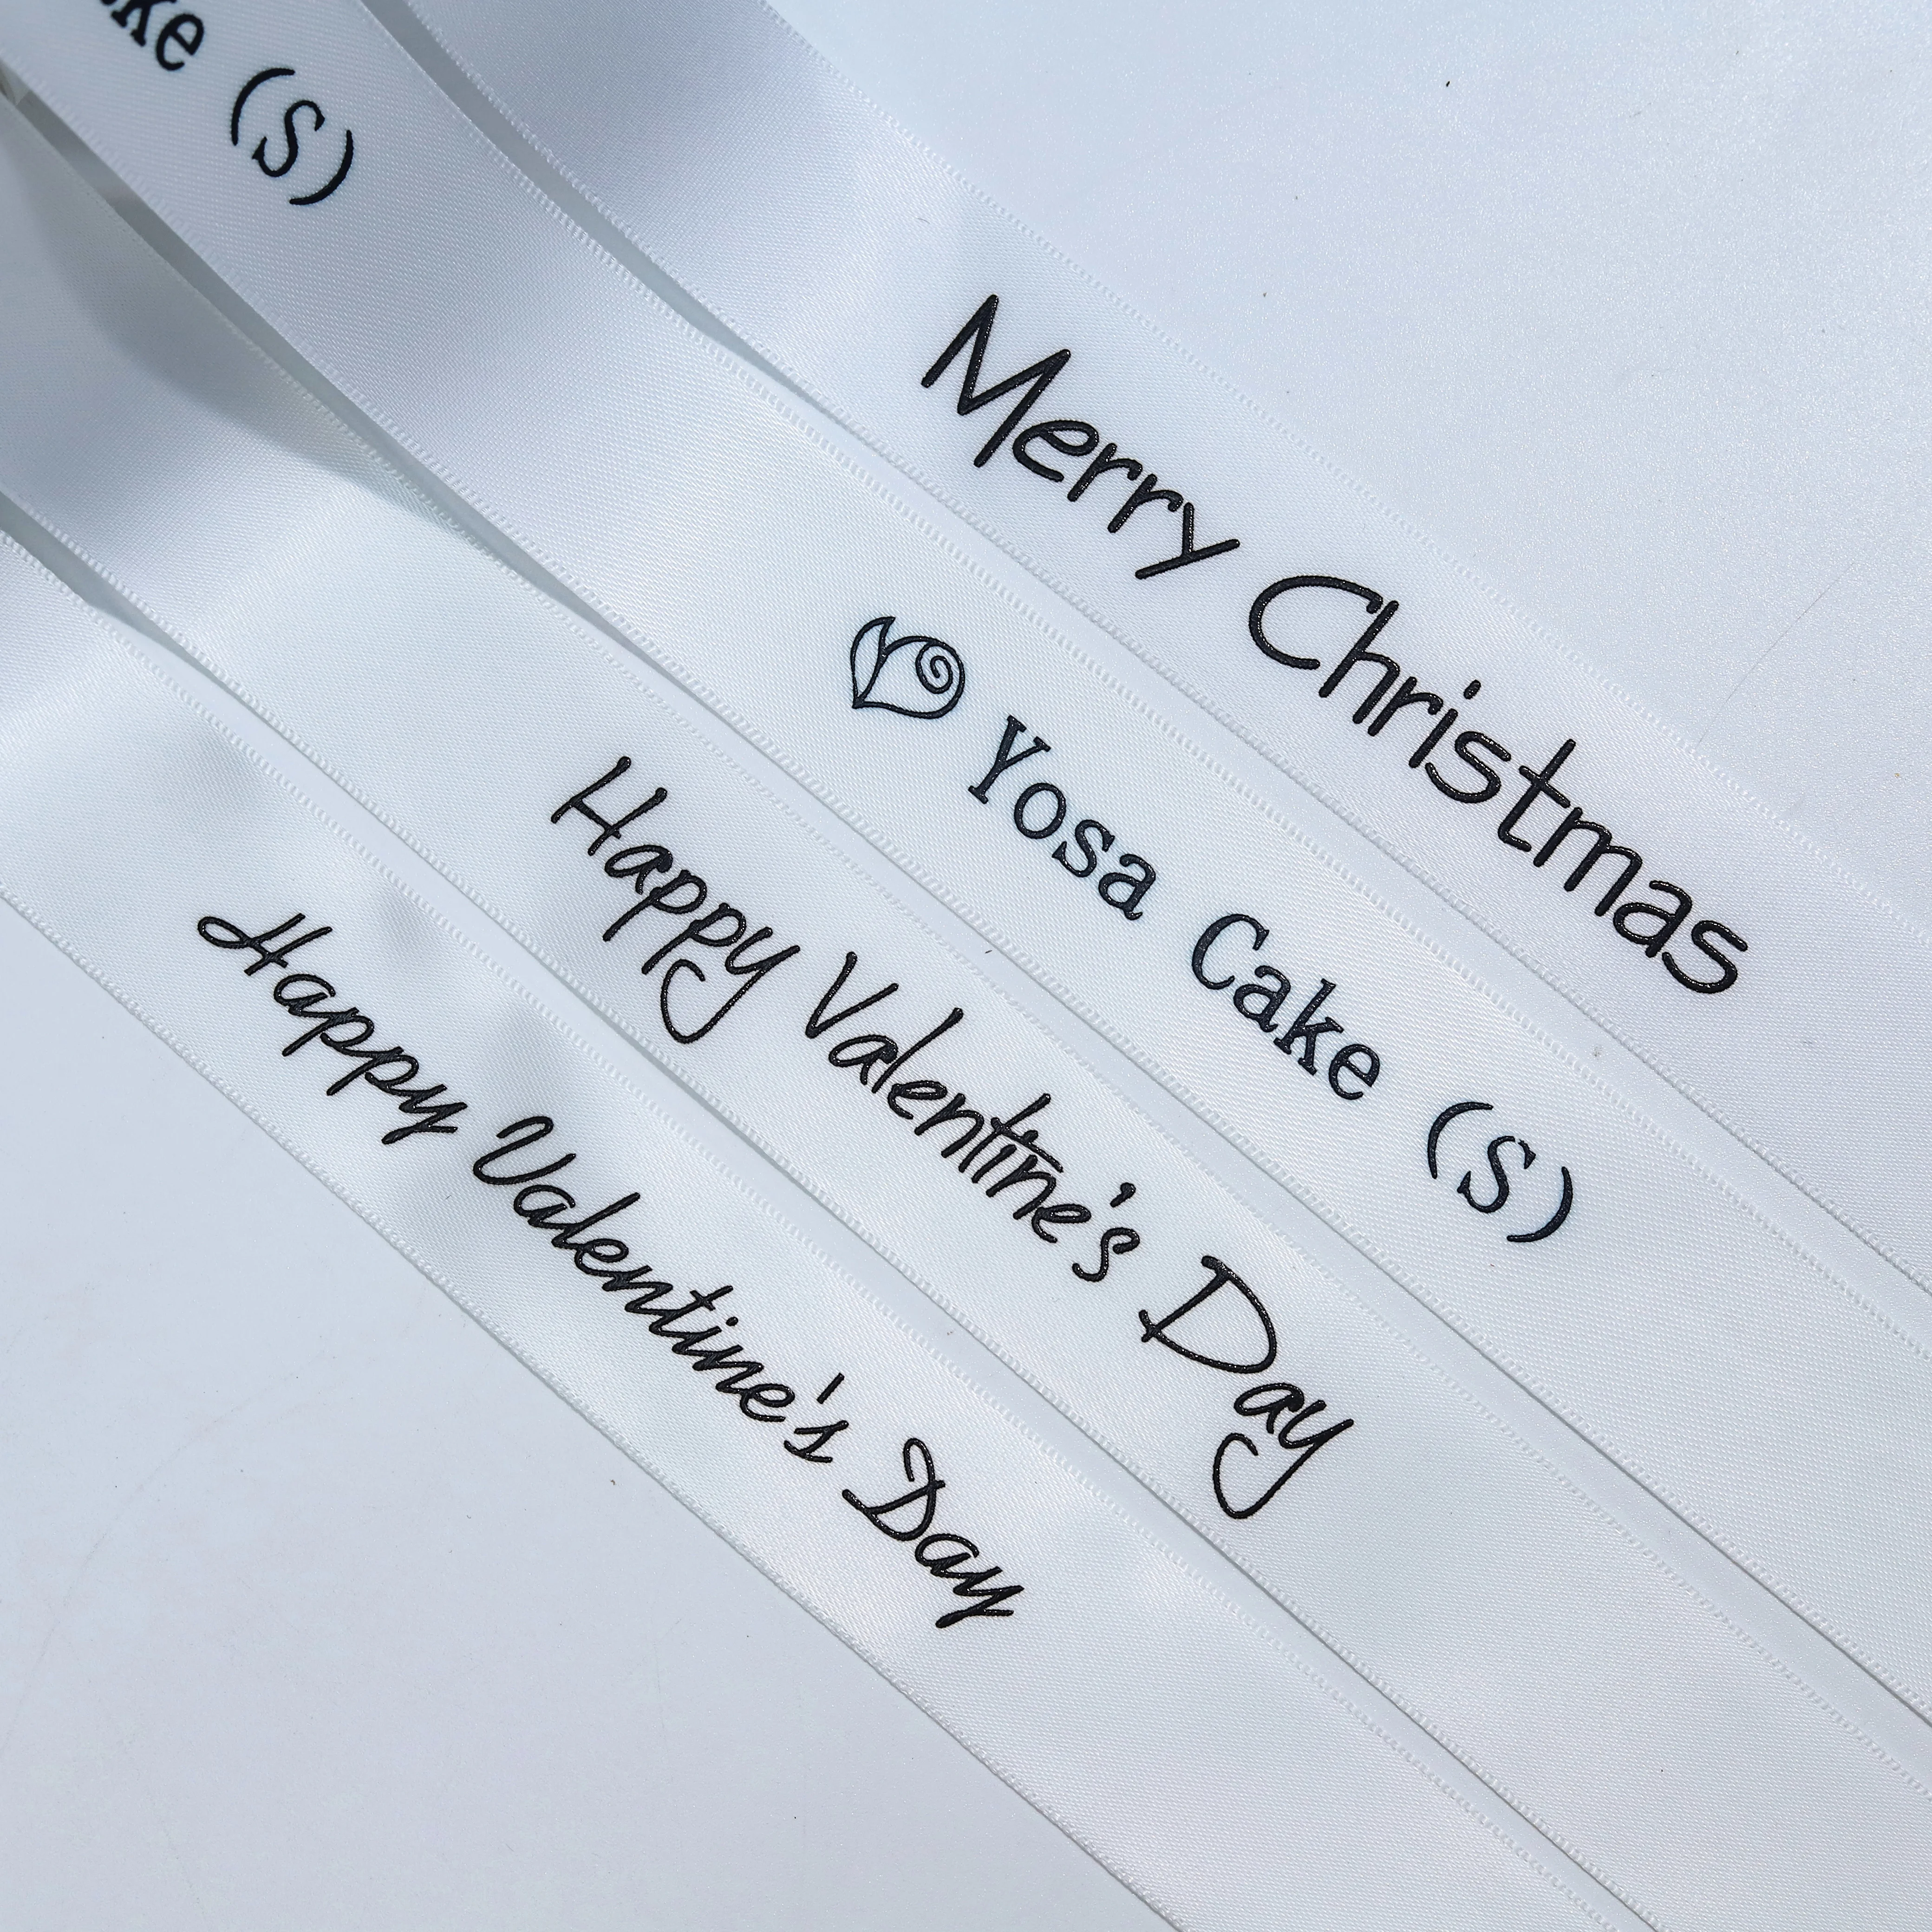 (S)
Merry Christmas
Yosa Cake (S)
Happy Valentine's Day
Happy Valentine's Day